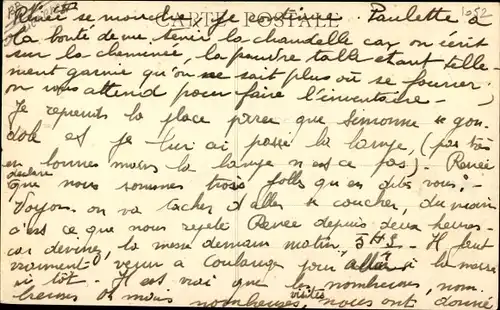 CARTE POSTALE
Renée se mouche, je continue. Paulette a
la bonté de me tenir la chandelle car on écrit
sur la cheminée, la pauvre table étant telle-
ment garnie qu'on ne sait plus où se fourrer.
on vous attend pour faire l'inventaire -
Je reprends la place parce que Simonne "gon-
dole" et je lui ai passé la lampe, (pas très
en bonnes mains la lampe n'est ce pas). Renée
déclare
que nous sommes trois folles qu'en dites vous? -
Voyons on va tacher d'aller se coucher, du moins
c'est ce que nous repete Renée depuis deux heures -
car devinez, la messe demain matin, Il faut
vraiment venir à Coulanges pour aller à la messe
si tôt. - Il est vrai que les nombreuses, nom
breuses nombreuses, visites
nous ont donné